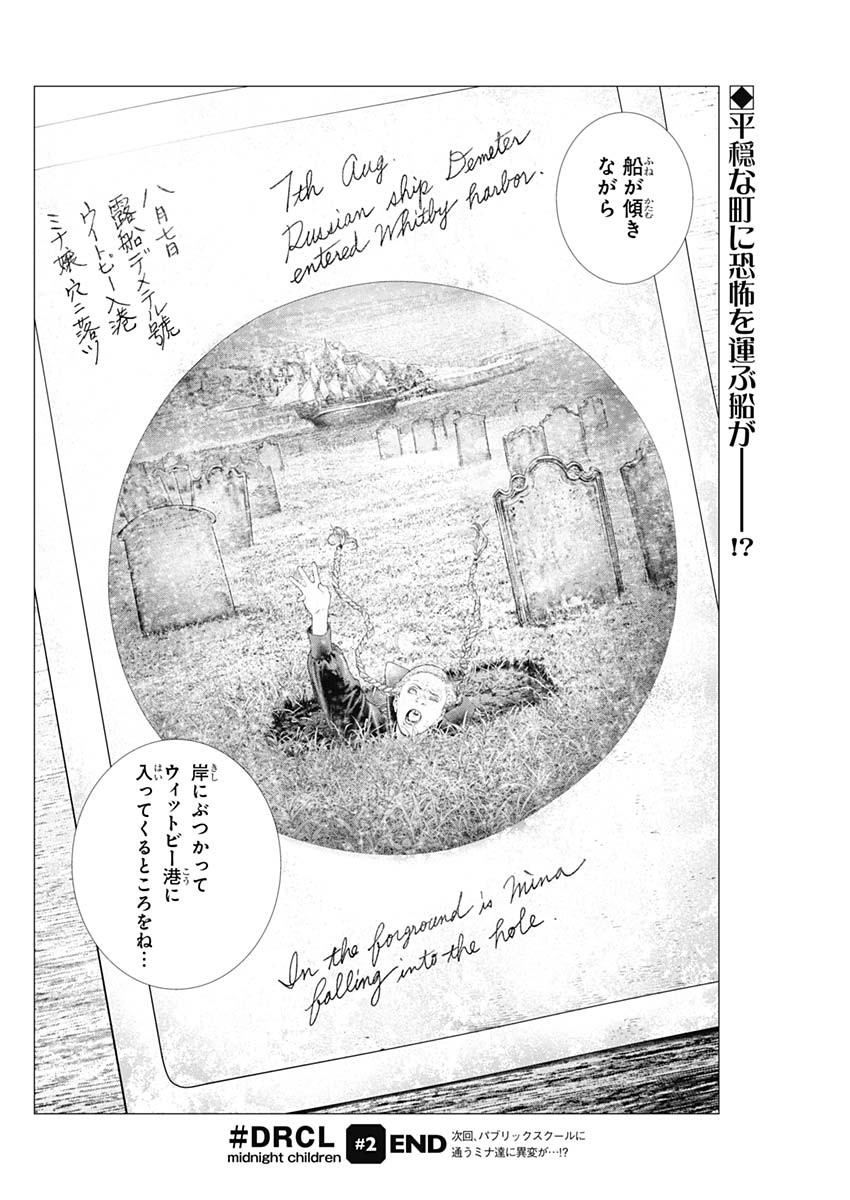 ◆平穏な町に恐怖を運ぶ船が——!?
船が傾き
ながら
7th Aug.
Russian ship Demeter
entered Whitby harbor.
八月七日
露船デメテル號
ウイトビー入港
ミナ嬢穴ニ落ツ
岸にぶつかって
ウィットビー港に
入ってくるところをね…
In the forground is Mina
falling into the hole.
#DRCL
midnight children
#2
END
次回、パブリックスクールに
通うミナ達に異変が…!?